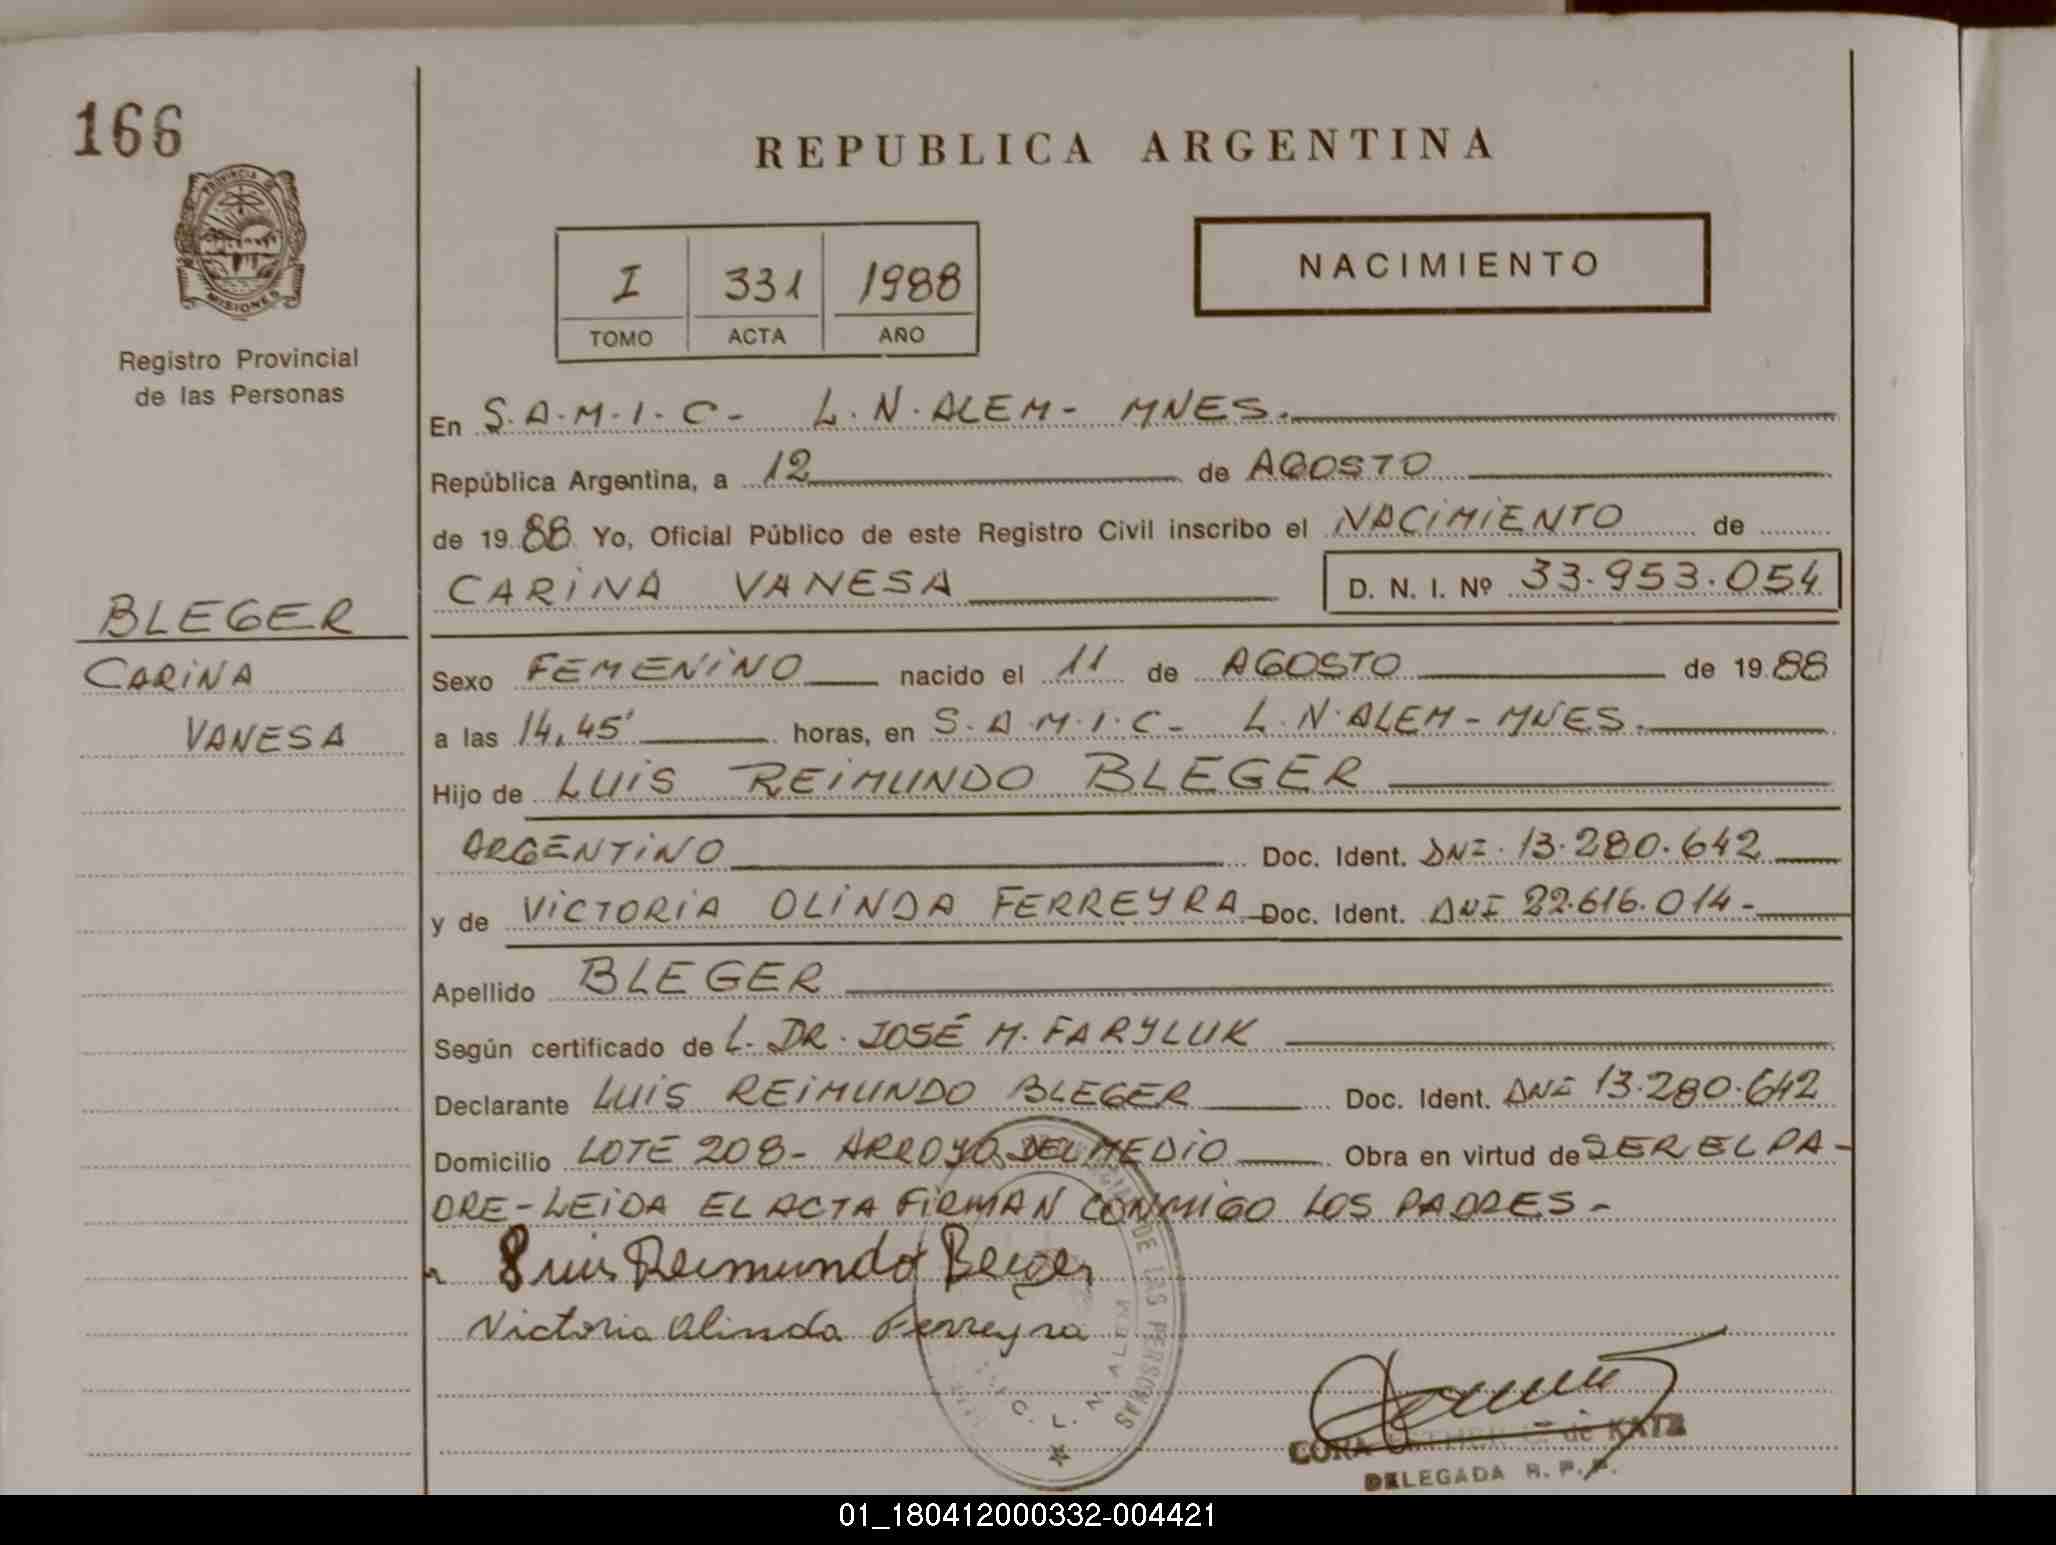 166
PROVINCIA DE
MISIONES
Registro Provincial
de las Personas
BLEGER
CARINA
VANESA
REPUBLICA ARGENTINA
I 331 1988
TOMO ACTA AÑO
NACIMIENTO
En S.A.M.I.C- L.N.ALEM- MNES.
República Argentina, a 12 de AGOSTO
de 19 88 Yo, Oficial Público de este Registro Civil inscribo el NACIMIENTO de
CARINA VANESA D. N. I. Nº 33.953.054
Sexo FEMENINO nacido el 11 de AGOSTO de 19 88
a las 14,45' horas, en S.A.M.I.C- L.N.ALEM-MNES.
Hijo de LUIS REIMUNDO BLEGER
ARGENTINO Doc. Ident. DNI. 13.280.642
y de VICTORIA OLINDA FERREYRA Doc. Ident. DNI 22.616.014-
Apellido BLEGER
Según certificado de L. DR. JOSÉ M. FARYLUK
Declarante LUIS REIMUNDO BLEGER Doc. Ident. DNI 13.280.642
Domicilio LOTE 208- ARROYO DEL MEDIO Obra en virtud de SER EL PA-
DRE-LEIDA EL ACTA FIRMAN CONMIGO LOS PADRES-
Luis Reimundo Bleger
Victoria Olinda Ferreyra
DE LAS PERSONAS
L. N. ALEM
CORA de KATZ
DELEGADA R. P. P.
01_180412000332-004421